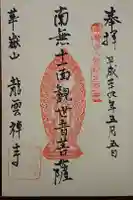 奉拝
平成二十九年五月五日
南無十一面観世音菩薩
華嶽山
龍雲禅寺